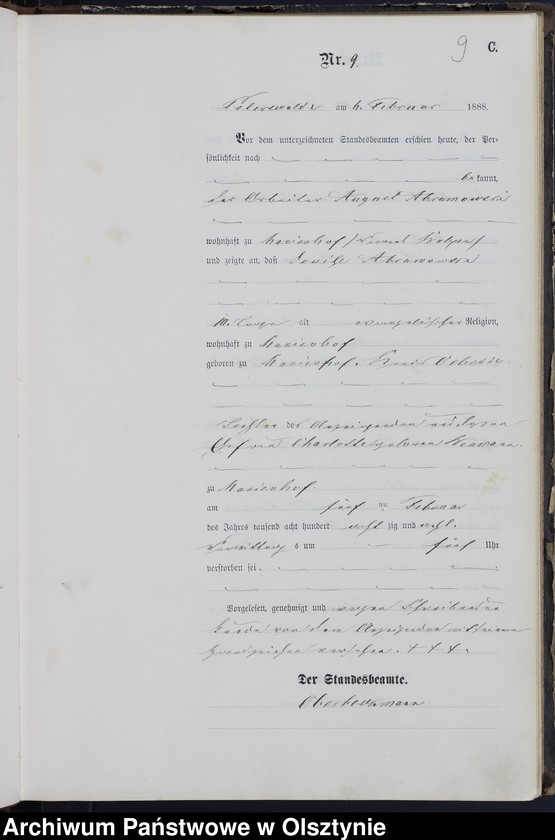 9 C.
Nr. 9.
am 6. Februar 1888.
Vor dem unterzeichneten Standesbeamten erschien heute, der Per-
sönlichkeit nach
bekannt,
der Arbeiter August Abramowski
wohnhaft zu Marienhof
und zeigte an, daß Abramowski
alt evangelischer Religion,
wohnhaft zu Marienhof
geboren zu Marienhof, Kreis Osterode
Tochter des Anzeigenden und dessen
Ehefrau Charlotte geborenen Neumann
zu Marienhof
am fünf ten Februar
des Jahres tausend acht hundert acht zig und acht
Vormittags um fünf Uhr
verstorben sei.
Vorgelesen, genehmigt und wegen Schreibens
von dem Anzeigenden mit seinem
Handzeichen versehen. + + +
Der Standesbeamte.
Archiwum Państwowe w Olsztynie